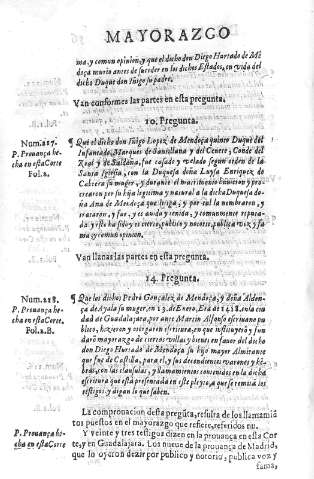 MAYORAZGO
ma, y comun opinion, y que el dicho don Diego Hurtado de Mē
doça murio antes de suceder en los dichos Estados, en vida del
dicho Duque don Iñigo su padre.
Van conformes las partes en esta pregunta.
10. Pregunta.
Num.217.
P. Prouança he-
cha en esta Corte
Fol.2.
Que el dicho don Iñigo Lopez de Mendoça quinto Duque del
Infantado, Marques de Santillana y del Cenete, Conde del
Real y de Saldaña, fue casado y velado segun orden de la
Santa Iglesia, con la Duquesa doña Luysa Enriquez de
Cabrera su muger, y durante el matrimonio huuieron y pro-
crearon por su hija legitima y natural a la dicha Duquesa do-
ña Ana de Mendoça que litiga, y por tal la nombraron, y
trataron, y fue, y es auida y tenida, y comunmente reputa-
da, y esto ha sido y es cierto, publico y notorio, publica voz y fa
ma y comun opinion.
Van llanas las partes en esta pregunta.
14. Pregunta.
Num.218.
P. Prouança he-
cha en esta Corte.
Fol.2.B.
¶ Que los dichos Pedro Gonçalez de Mendoça, y doña Aldon-
ça de Ayala su muger, en 13. de Enero, Era de en la ciu
dad de Guadalajara, por ante Martin Alfonso escriuano pu
blico, hizieron y otorgaron escritura, en que instituyeron y fun
daron mayorazgo de ciertas villas y bienes en fauor del dicho
don Diego Hurtado de Mendoça su hijo mayor Almirante
que fue de Castilla, para el, y sus decendientes varones y hē-
bras, con las clausulas, y llamamientos contenidos en la dicha
escritura que està presentada en este pleyto, a que se remitā los
testigos, y digan lo que saben.
La comprouacion desta pregūta, resulta de los llamamiē
tos puestos en el mayorazgo que refiere, referidos nu.
P. Prouança he-
cha en esta Corte
Y veinte y tres testigos dizen en la prouança en esta Cor
te, y en Guadalajara. Los nueue de la prouança de Madrid,
que lo oyeron dezir por publico y notorio, publica voz y
fama,